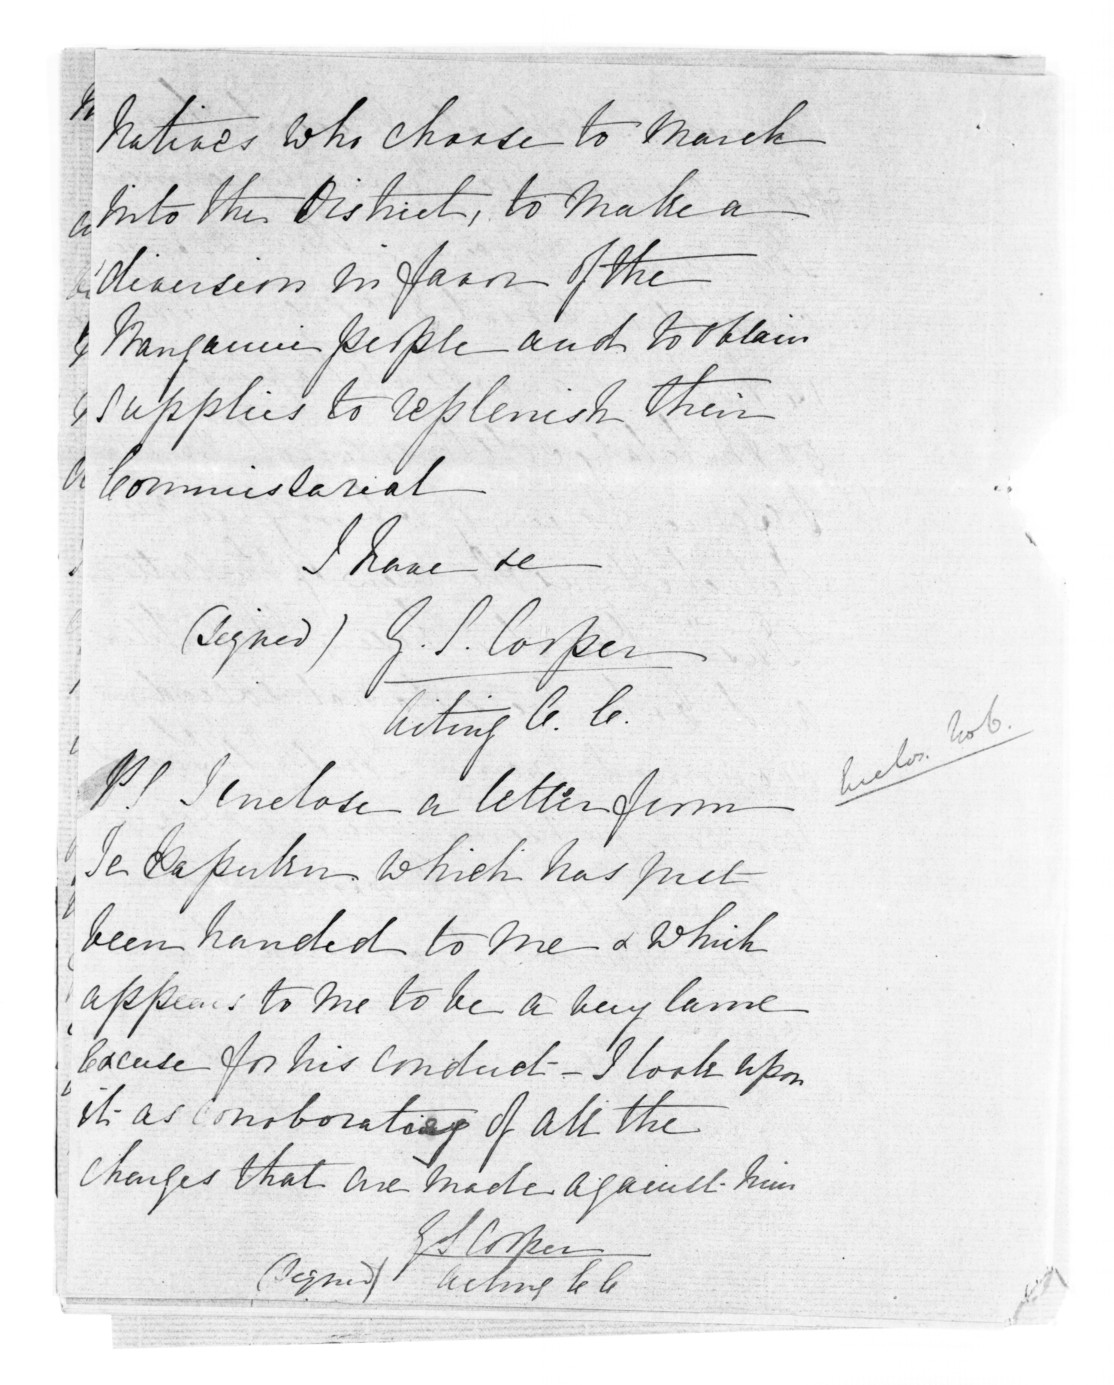 Natives who choose to march
into the District, to make a
diversion in favor of the
Wanganui people and to obtain
supplies to replenish their
Commissariat
I have &c
(Signed) G. S. Cooper
Acting C. C.
Enclos. No 6.
P.S I enclose a letter from
Te Hapuku which has just
been handed to me & which
appears to me to be a very lame
excuse for his conduct - I look upon
it as corroborating of all the
charges that are made against him
G S Cooper
(Signed) Acting C C